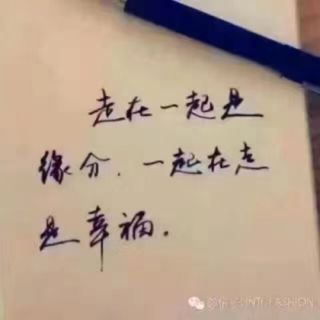 走在一起是
缘分，一起在走
是幸福。
FASHION